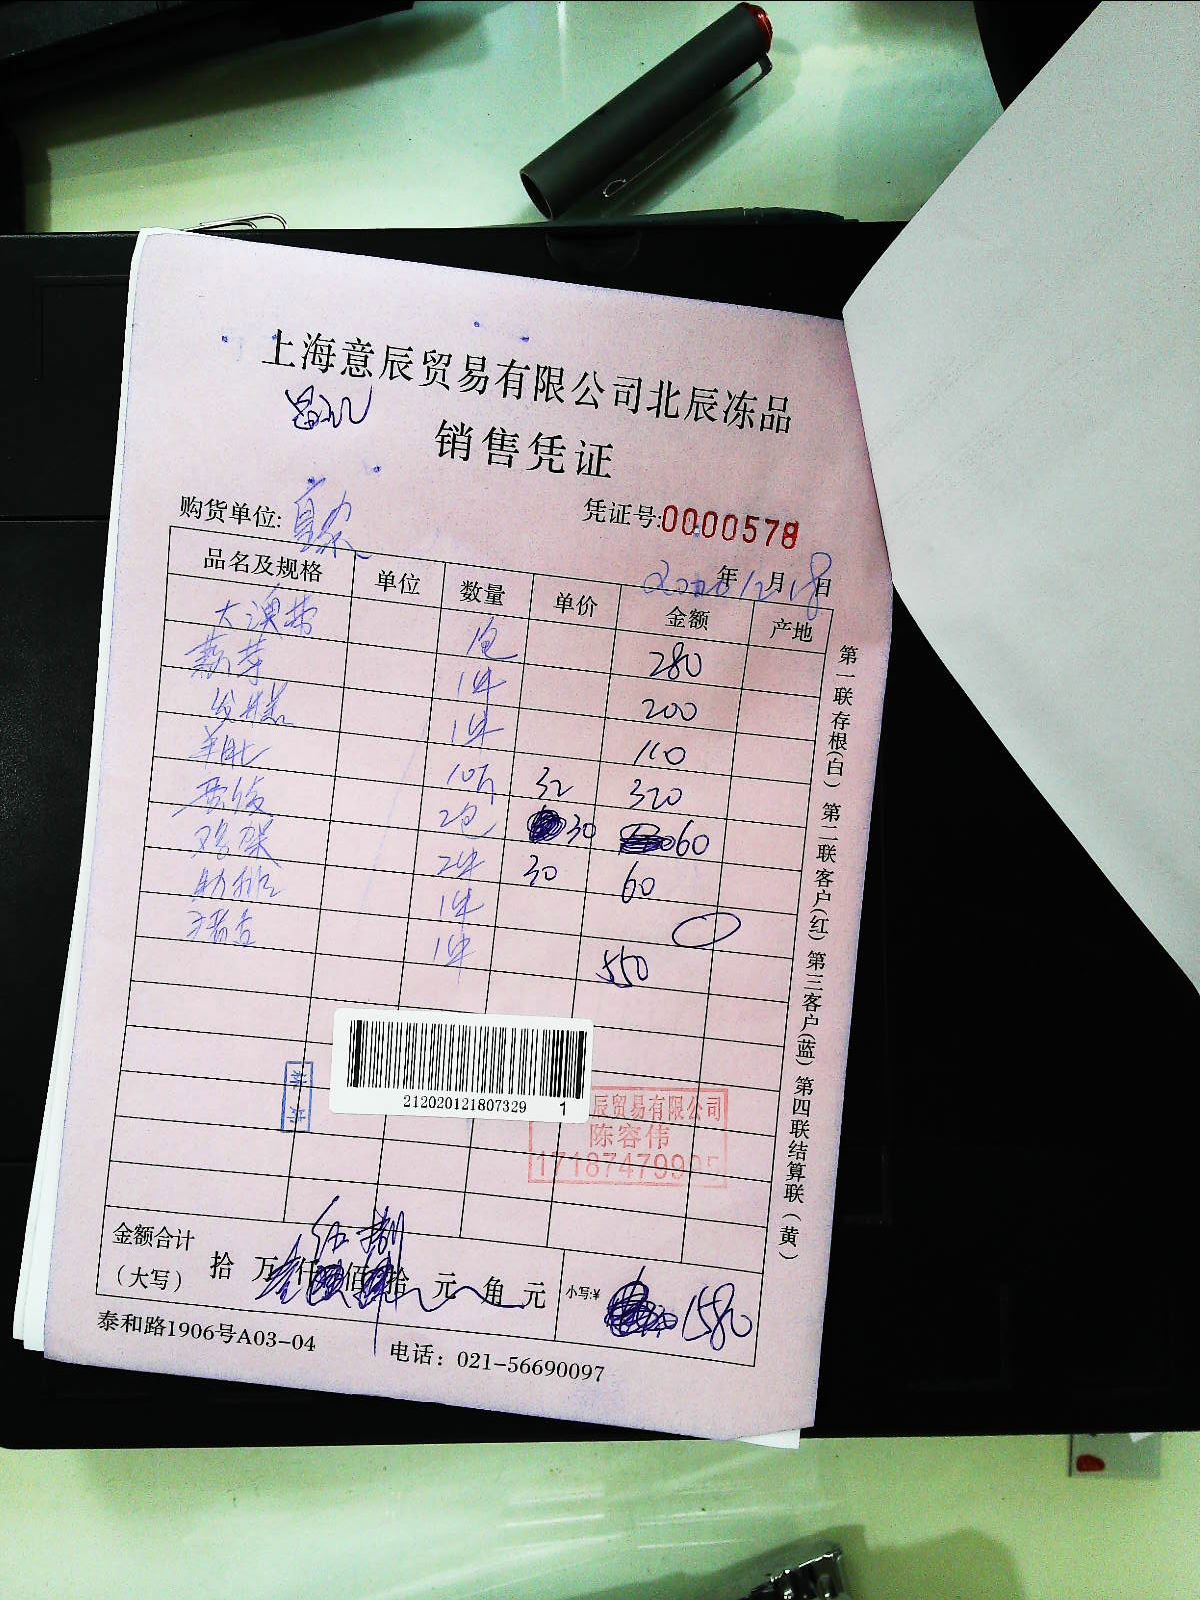 上海意辰贸易有限公司北辰冻品
销售凭证
购货单位:
凭证号:0000578
2020年12月18日
品名及规格 单位 数量 单价 金额 产地
大澳带 1包 280
燕芽 1件 200
发糕 1件 110
羊肚 10斤 32 320
2包 30 60
鸡架 2件 30 60
肋排 1件
猪舌 1件 550
212020121807329 1
辰贸易有限公司
陈容伟
金额合计
(大写) 拾 万 仟 佰 拾 元 角 元 小写:¥ 1580
泰和路1906号A03-04 电话: 021-56690097
第一联存根(白) 第二联客户(红) 第三客户(蓝) 第四联结算联(黄)